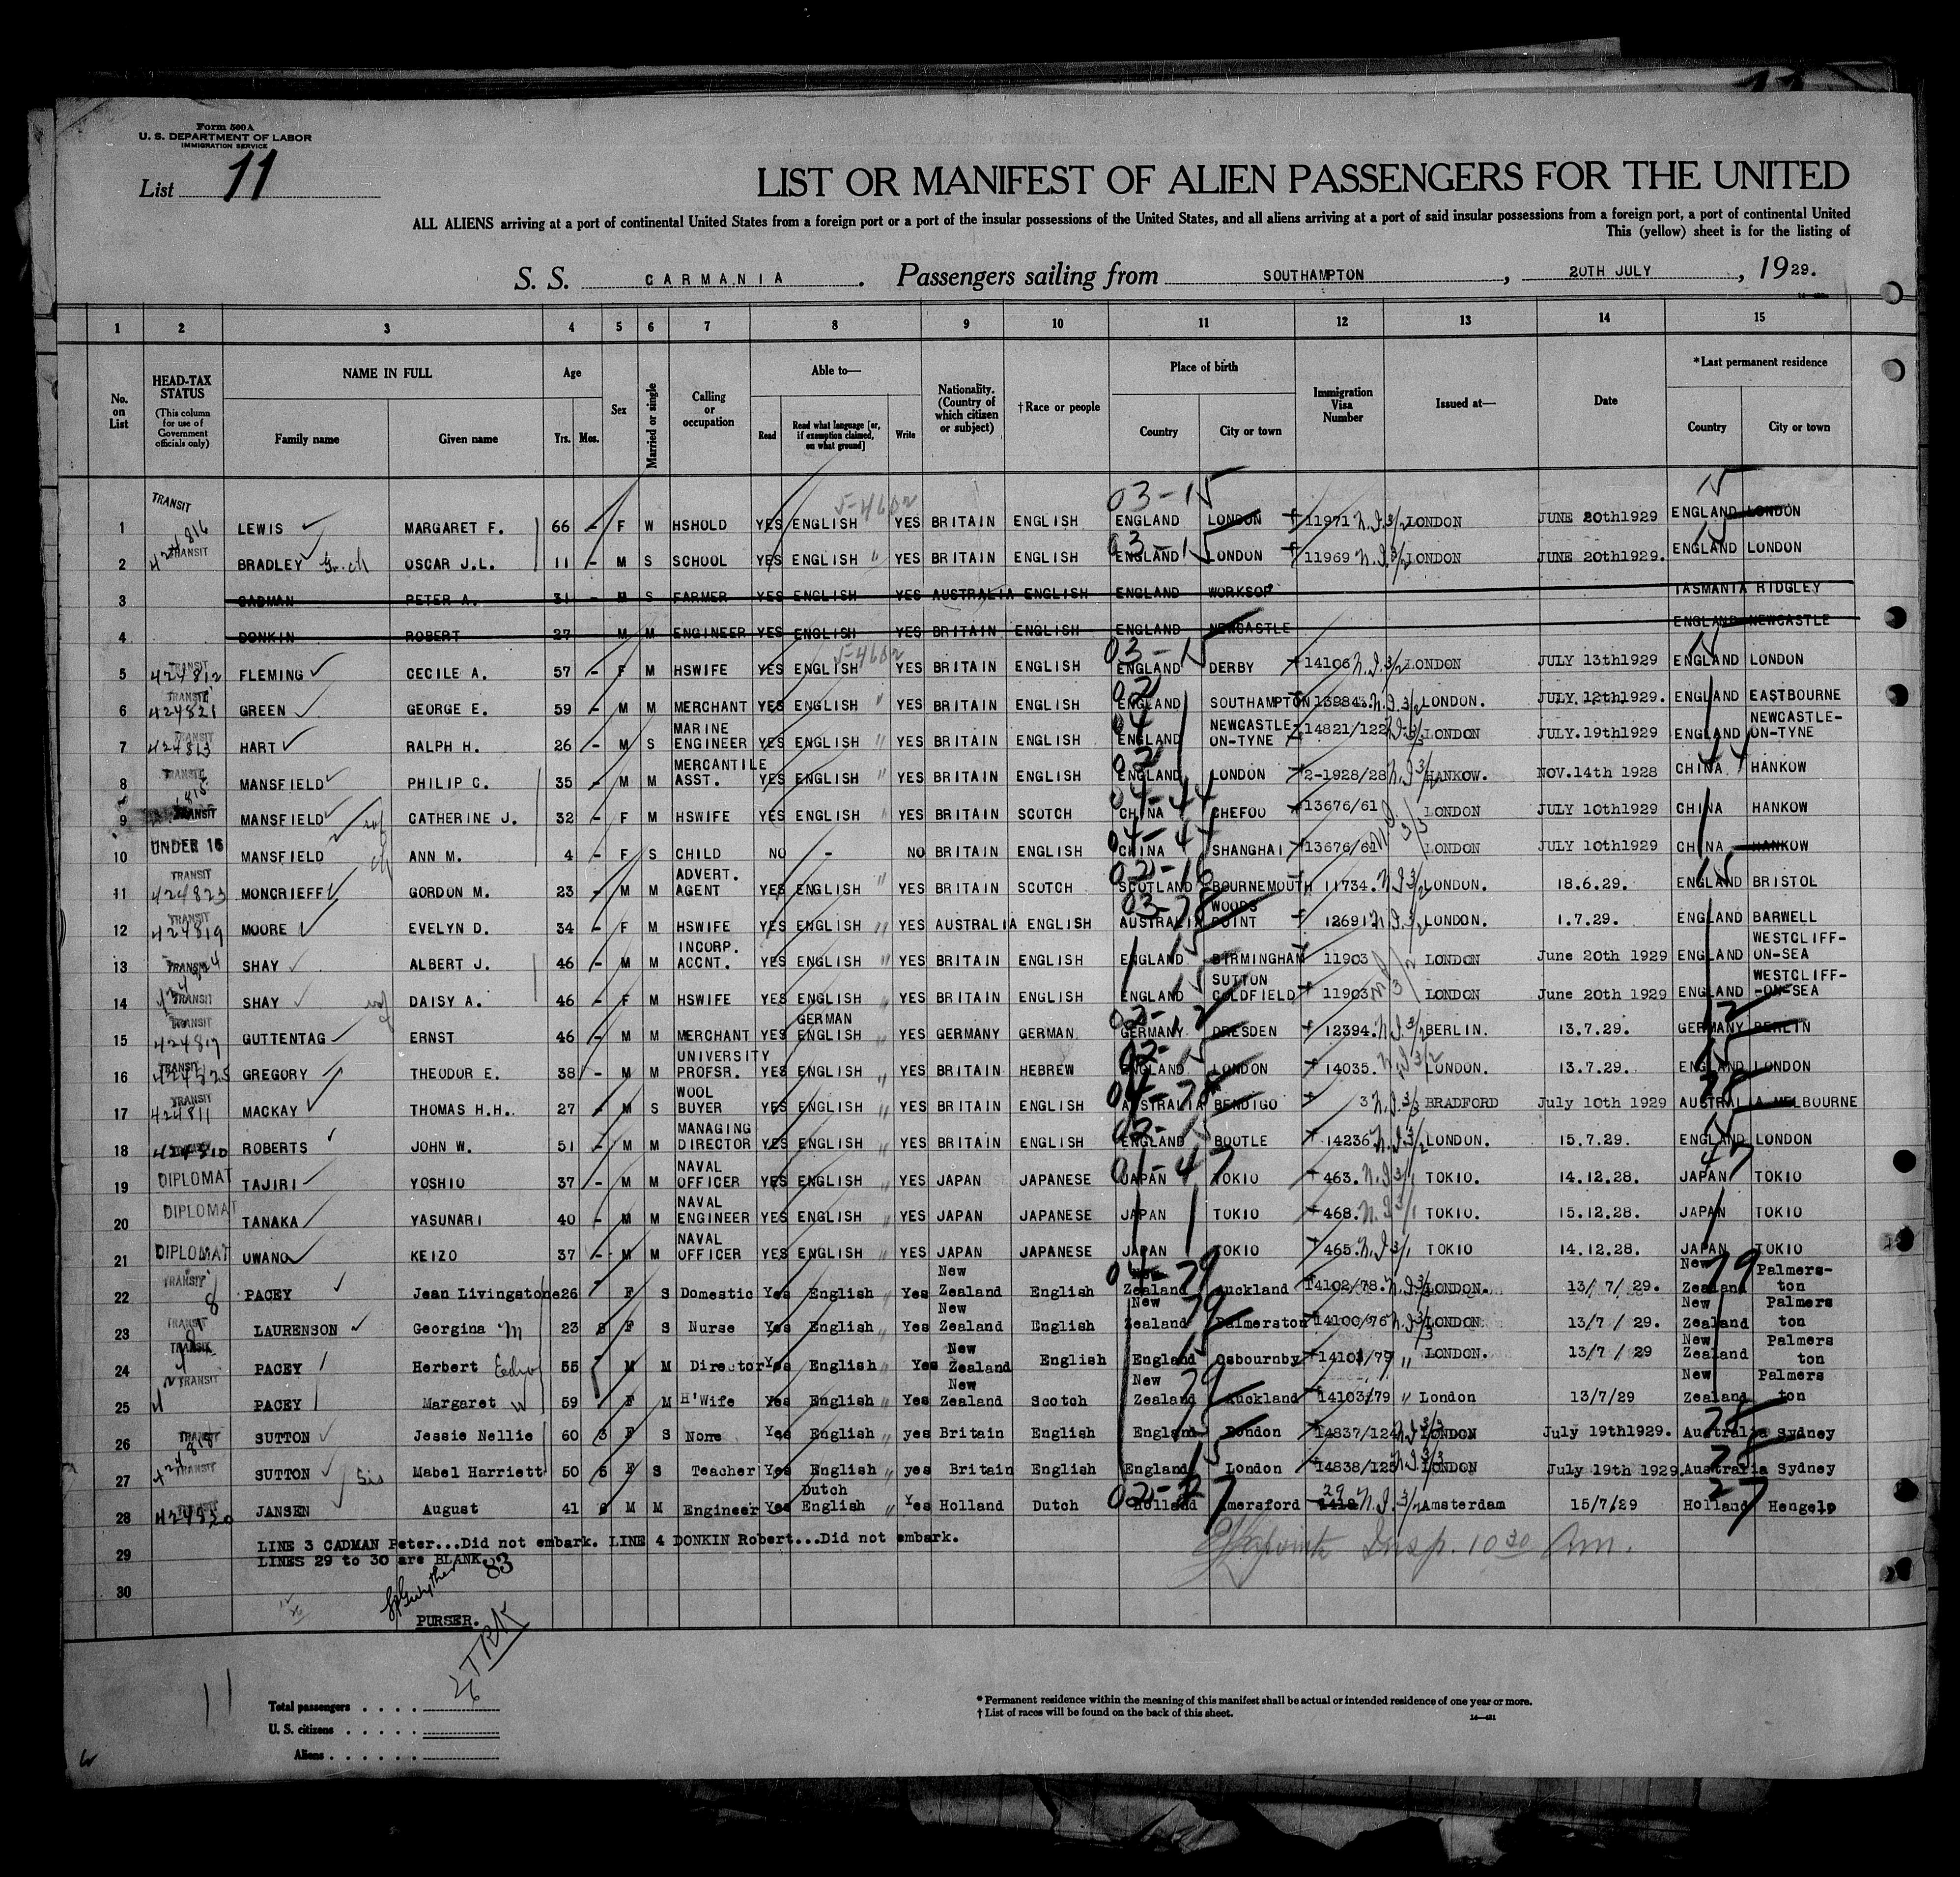 Form 500 A
U. S. DEPARTMENT OF LABOR
IMMIGRATION SERVICE
List 11
LIST OR MANIFEST OF ALIEN PASSENGERS FOR THE UNITED
ALL ALIENS arriving at a port of continental United States from a foreign port or a port of the insular possessions of the United States, and all aliens arriving at a port of said insular possessions from a foreign port, a port of continental United
This (yellow) sheet is for the listing of
S. S. CARMANIA. Passengers sailing from SOUTHAMPTON, 20TH JULY, 1929.
1 2 3 4 5 6 7 8 9 10 11 12 13 14 15
No. on List
HEAD-TAX STATUS (This column for use of Government officials only)
NAME IN FULL Family name Given name
Age Yrs. Mos.
Sex
Married or single
Calling or occupation
Able to— Read Read what language [or, if exemption claimed, on what ground] Write
Nationality. (Country of which citizen or subject)
†Race or people
Place of birth Country City or town
Immigration Visa Number
Issued at—
Date
*Last permanent residence Country City or town
1 TRANSIT LEWIS MARGARET F. 66 - F W HSHOLD YES ENGLISH YES BRITAIN ENGLISH 03-15 ENGLAND LONDON 11971 LONDON JUNE 20th1929 15 ENGLAND LONDON
2 424816 TRANSIT BRADLEY Gr.ch OSCAR J.L. 11 - M S SCHOOL YES ENGLISH " YES BRITAIN ENGLISH 03-15 ENGLAND LONDON 11969 LONDON JUNE 20th1929. 15 ENGLAND LONDON
3 CADMAN PETER A. 31 - M S FARMER YES ENGLISH YES AUSTRALIA ENGLISH ENGLAND WORKSOP TASMANIA RIDGLEY
4 DONKIN ROBERT 27 M M ENGINEER YES ENGLISH YES BRITAIN ENGLISH ENGLAND NEWCASTLE ENGLAND NEWCASTLE
5 TRANSIT 424812 FLEMING CECILE A. 57 - F M HSWIFE YES ENGLISH YES BRITAIN ENGLISH 03-15 ENGLAND DERBY 14106 LONDON JULY 13th1929 15 ENGLAND LONDON
6 TRANSIT 424821 GREEN GEORGE E. 59 - M M MERCHANT YES ENGLISH " YES BRITAIN ENGLISH 02 ENGLAND SOUTHAMPTON 139843. LONDON. JULY.12th1929. ENGLAND EASTBOURNE
7 TRANSIT 424813 HART RALPH H. 26 - M S MARINE ENGINEER YES ENGLISH " YES BRITAIN ENGLISH 04 ENGLAND NEWCASTLE-ON-TYNE 14821/122 LONDON JULY.19th1929 ENGLAND NEWCASTLE-ON-TYNE
8 TRANSIT MANSFIELD PHILIP C. 35 - M M MERCANTILE ASST. YES ENGLISH " YES BRITAIN ENGLISH 02 ENGLAND LONDON 2-1928/28 HANKOW. NOV.14th 1928 44 CHINA HANKOW
9 TRANSIT MANSFIELD wf CATHERINE J. 32 - F M HSWIFE YES ENGLISH " YES BRITAIN SCOTCH 04-44 CHINA CHEFOO 13676/61 LONDON JULY 10th1929 CHINA HANKOW
10 UNDER 16 MANSFIELD ch ANN M. 4 - F S CHILD NO - NO BRITAIN ENGLISH 04-44 CHINA SHANGHAI 13676/61 LONDON JULY 10th1929 CHINA HANKOW
11 TRANSIT 424823 MONCRIEFF GORDON M. 23 - M M ADVERT. AGENT YES ENGLISH " YES BRITAIN SCOTCH 02-16 SCOTLAND BOURNEMOUTH 11734. LONDON. 18.6.29. 15 ENGLAND BRISTOL
12 TRANSIT 424819 MOORE EVELYN D. 34 - F M HSWIFE YES ENGLISH " YES AUSTRALIA ENGLISH 03-78 AUSTRALIA WOODS POINT 12691 LONDON. 1.7.29. ENGLAND BARWELL
13 TRANSIT SHAY ALBERT J. 46 - M M INCORP. ACCNT. YES ENGLISH " YES BRITAIN ENGLISH 15 ENGLAND BIRMINGHAM 11903 LONDON June 20th 1929 ENGLAND WESTCLIFF-ON-SEA
14 TRANSIT SHAY wf DAISY A. 46 - F M HSWIFE YES ENGLISH " YES BRITAIN ENGLISH 15 ENGLAND SUTTON COLDFIELD 11903 LONDON June 20th 1929 ENGLAND WESTCLIFF--ON-SEA
15 TRANSIT 424817 GUTTENTAG ERNST 46 - M M MERCHANT YES GERMAN ENGLISH " YES GERMANY GERMAN 02-12 GERMANY DRESDEN 12394. BERLIN. 13.7.29. 12 GERMANY BERLIN
16 TRANSIT 424825 GREGORY THEODOR E. 38 - M M UNIVERSITY PROFSR. YES ENGLISH " YES BRITAIN HEBREW 02-15 ENGLAND LONDON 14035. LONDON. 13.7.29. 15 ENGLAND LONDON
17 TRANSIT 424811 MACKAY THOMAS H.H. 27 - M S WOOL BUYER YES ENGLISH " YES BRITAIN ENGLISH 04-78 AUSTRALIA BENDIGO 3 BRADFORD July 10th 1929 78 AUSTRALIA MELBOURNE
18 424810 ROBERTS JOHN W. 51 - M M MANAGING DIRECTOR YES ENGLISH " YES BRITAIN ENGLISH 02-15 ENGLAND BOOTLE 14236 LONDON. 15.7.29. 15 ENGLAND LONDON
19 DIPLOMAT TAJIRI YOSHIO 37 - M M NAVAL OFFICER YES ENGLISH " YES JAPAN JAPANESE 01-47 JAPAN TOKIO 463. TOKIO. 14.12.28. 47 JAPAN TOKIO
20 DIPLOMAT TANAKA YASUNARI 40 - M M NAVAL ENGINEER YES ENGLISH " YES JAPAN JAPANESE JAPAN TOKIO 468. TOKIO. 15.12.28. JAPAN TOKIO
21 DIPLOMAT UWANO KEIZO 37 - M M NAVAL OFFICER YES ENGLISH " YES JAPAN JAPANESE JAPAN TOKIO 465. TOKIO 14.12.28. JAPAN TOKIO
22 TRANSIT 8 PACEY Jean Livingstone 26 F S Domestic Yes English " Yes New Zealand English 04-79 New Zealand Auckland 14102/78. LONDON. 13/ 7/ 29. 79 New Zealand Palmers-ton
23 TRANSIT LAURENSON Georgina M 23 8 F S Nurse Yes English " Yes New Zealand English 79 New Zealand Palmerston 14100/76 LONDON. 13/7 / 29. New Zealand Palmers ton
24 TRANSIT PACEY Herbert Edw 55 M M Director Yes English " Yes New Zealand English 15 England Osbournby 14101/77 " LONDON. 13/7 / 29 New Zealand Palmers ton
25 TRANSIT PACEY Margaret W 59 F M H'Wife Yes English " Yes New Zealand Scotch 79 New Zealand Auckland 14103/79 " London 13/7/29 New Zealand Palmers ton
26 TRANSIT SUTTON Jessie Nellie 60 3 F S None Yes English " yes Britain English England London 14837/124 LONDON July 19th1929. 78 Australia Sydney
27 TRANSIT SUTTON Sis Mabel Harriett 50 5 F S Teacher Yes English " yes Britain English 15 England London 14838/125 LONDON July 19th 1929. 78 Australia Sydney
28 TRANSIT 424820 JANSEN August 41 6 M M Engineer Yes Dutch English " Yes Holland Dutch 02-27 Holland Amersford 29 Amsterdam 15/7/29 27 Holland Hengelo
29 LINE 3 CADMAN Peter...Did not embark. LINE 4 DONKIN Robert...Did not embark.
LINES 29 to 30 are BLANK. 83
Insp. 10 30 Am.
30
PURSER.
26 TRK
11
Total passengers . . . .
U. S. citizens . . . . .
Aliens . . . . . .
* Permanent residence within the meaning of this manifest shall be actual or intended residence of one year or more.
† List of races will be found on the back of this sheet.